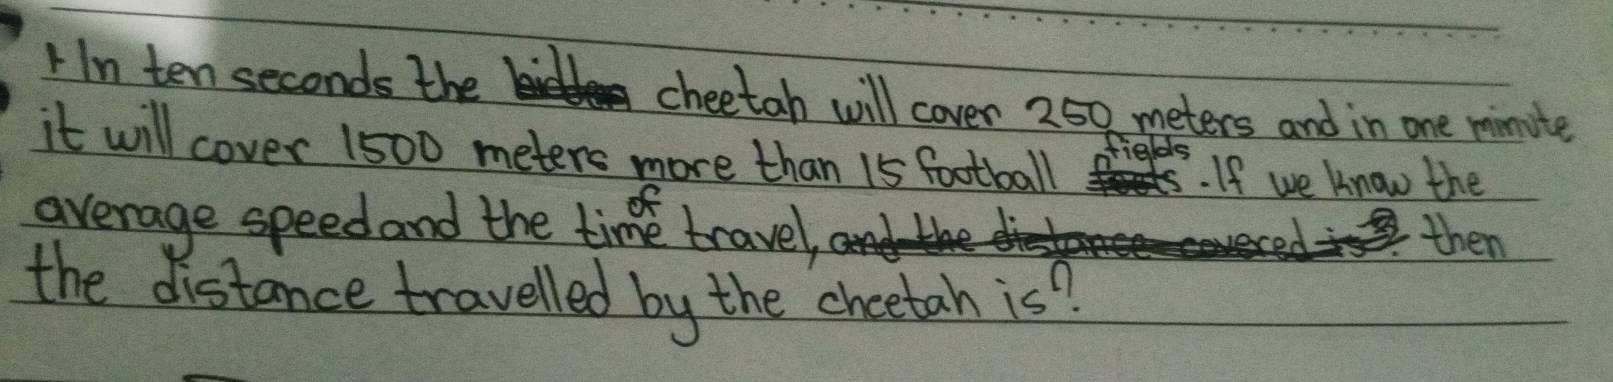 In ten seconds the cheetah will cover 250 meters and in one minute
it will cover 1500 meters more than 15 football fields. If we know the
average speed and the time of travel, and the distance covered is? then
the distance travelled by the cheetah is?